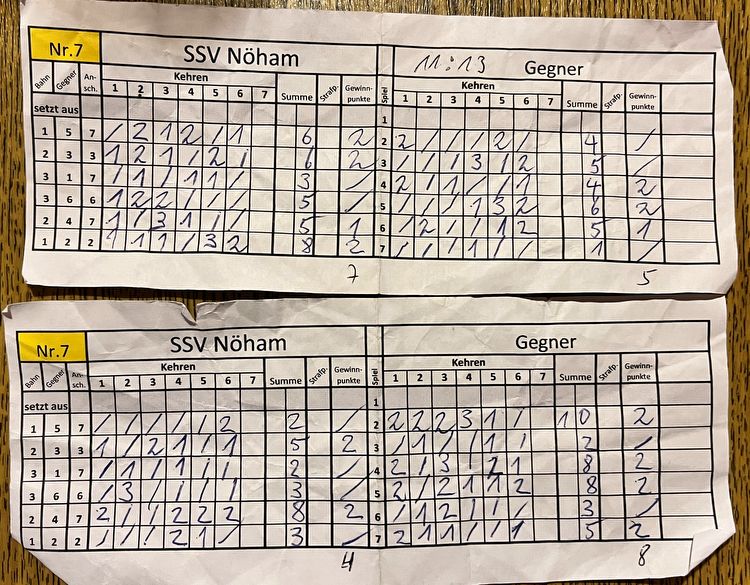 Nr.7 SSV Nöham 11:13 Gegner
Bahn Gegner An-sch. Kehren Summe Strafp. Gewinn-punkte Spiel Kehren Summe Strafp. Gewinn-punkte
1 2 3 4 5 6 7 1 2 3 4 5 6 7
setzt aus 1
1 5 7 / 2 1 2 / 1 6 2 2 2 / / / 2 / 4 /
2 3 3 1 2 1 / 2 6 2 3 / / / 3 / 2 5 /
3 1 7 / 1 / 1 1 / 3 / 4 2 / 1 / / 1 4 2
3 6 6 1 2 2 / / / 5 / 5 / / / 1 3 2 6 2
2 4 7 1 / 3 1 / / 5 1 6 / 2 / / 1 2 5 1
1 2 2 1 1 1 / 3 2 8 2 7 / / / 1 / / 1 /
7 5
Nr.7 SSV Nöham Gegner
Bahn Gegner An-sch. Kehren Summe Strafp. Gewinn-punkte Spiel Kehren Summe Strafp. Gewinn-punkte
1 2 3 4 5 6 7 1 2 3 4 5 6 7
setzt aus 1
1 5 7 / / / / / 2 2 / 2 2 2 2 3 1 / 10 2
2 3 3 1 / 2 1 / 1 5 2 3 / 1 / / 1 / 2 /
3 1 7 / 1 / 1 / / 2 / 4 2 / 3 / 2 1 8 2
3 6 6 / 3 / / / / 3 / 5 2 / 2 1 1 2 8 2
2 4 7 2 / / 2 2 2 8 2 6 / 1 2 / / / 3 /
1 2 2 / / / 2 1 / 3 / 7 2 1 1 / / 1 5 2
4 8